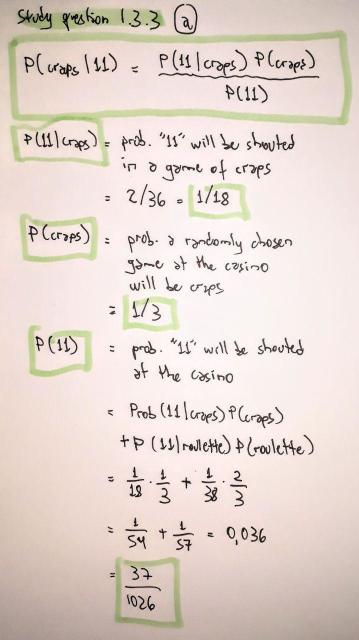 Study question 1.3.3 (a)
P(craps|11) = P(11|craps) P(craps) / P(11)
P(11|craps) = prob. "11" will be shouted
in a game of craps
= 2/36 = 1/18
P(craps) = prob. a randomly chosen
game at the casino
will be craps
= 1/3
P(11) = prob. "11" will be shouted
at the casino
= Prob(11|craps) P(craps)
+ P(11|roulette) P(roulette)
= 1/18 · 1/3 + 1/38 · 2/3
= 1/54 + 1/57 = 0,036
= 37/1026